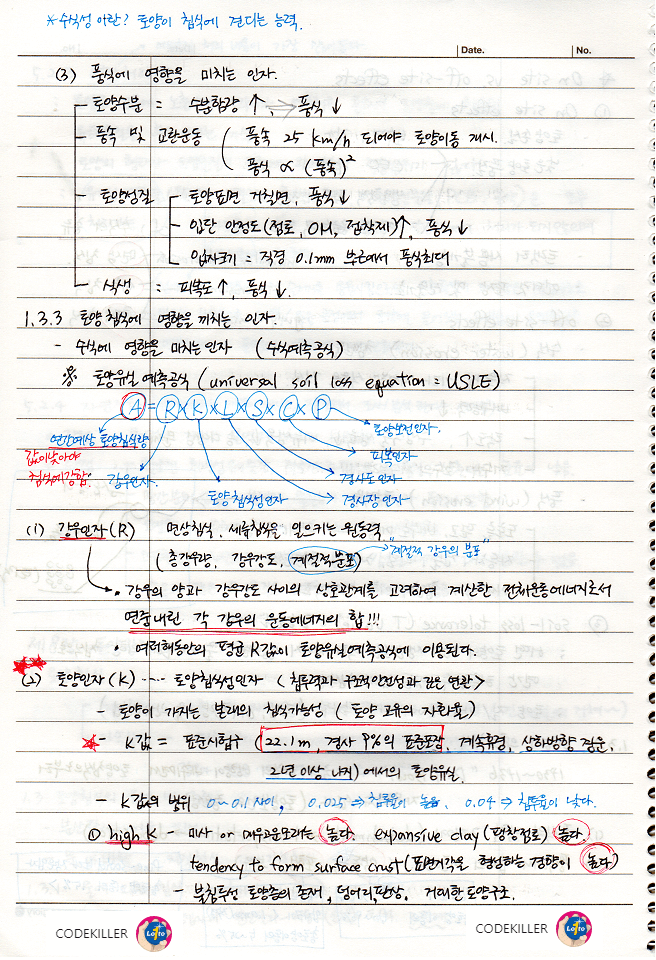 *수식성 이란? 토양이 침식에 견디는 능력.
Date. No.
(3) 풍식에 영향을 미치는 인자.
토양수분 = 수분함량 ↑, ⇒ 풍식 ↓
풍속 및 교란운동 ( 풍속 25 km/h 되어야 토양이동 개시.
풍식 ∝ (풍속)²
토양성질 토양표면 거칠면, 풍식 ↓
입단 안정도 (점토, OM, 접착제)↑, 풍식 ↓
입자크기 = 직경 0.1mm 부근에서 풍식최대
식생 = 피복도 ↑, 풍식 ↓.
1.3.3 토양침식에 영향을 끼치는 인자.
- 수식에 영향을 미치는 인자 (수식예측공식)
※ 토양유실 예측공식 (universal soil loss equation = USLE)
A = R × K × L × S × C × P
연간예상 토양침식량
토양보전인자.
값이낮아야
피복인자
침식에강함.
강우인자.
경사도인자
토양침식성인자
경사장인자
(1) 강우인자(R) 면상침식, 세류침식을 일으키는 원동력
(총강우량, 강우강도, 계절적분포) "계절적 강우의 분포"
• 강우의 양과 강우강도 사이의 상호관계를 고려하여 계산한 전체운동에너지로서
연중내린 각 강우의 운동에너지의 합!!!
• 여러해동안의 평균 R값이 토양유실예측공식에 이용된다.
(2) 토양인자(K) ---- 토양침식성인자 <침투력과 구조적안정성과 깊은 연관>
- 토양이 가지는 본래의 침식가능성 (토양 고유의 자환율)
- K값 = 표준시험구 (22.1m, 경사 9%의 표준포장, 계속휴경, 상하방향 경운,
2년 이상 나지)에서의 토양유실.
- K값의 범위 0~0.1 사이, 0.025 ⇒ 침투율이 높음, 0.04 ⇒ 침투율이 낮다.
① high K - 미사 or 매우고운모래는 높다. expansive clay (팽창점토) 높다.
tendency to form surface crust (표면거각을 형성하는 경향이 높다)
- 불침투성 토양층의 존재, 덩어리, 판상, 거대한 토양구조.
CODEKILLER Lotto CODEKILLER Lotto